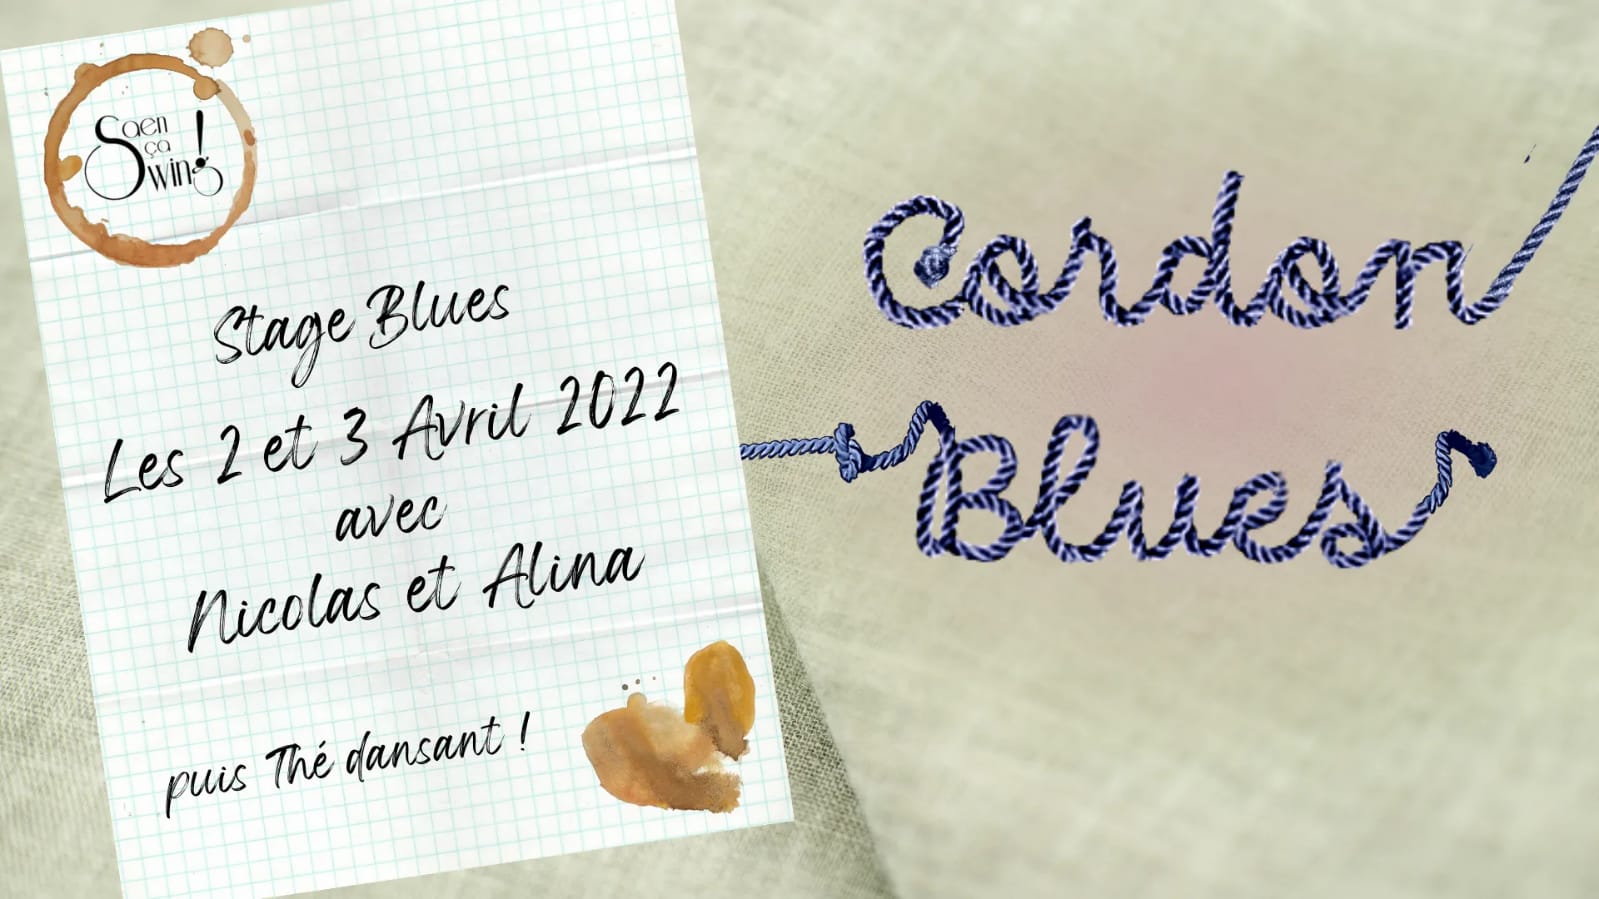 Saen
ça
Swing!
Stage Blues
Les 2 et 3 Avril 2022
avec
Nicolas et Alina
puis Thé dansant !
Cordon
Blues